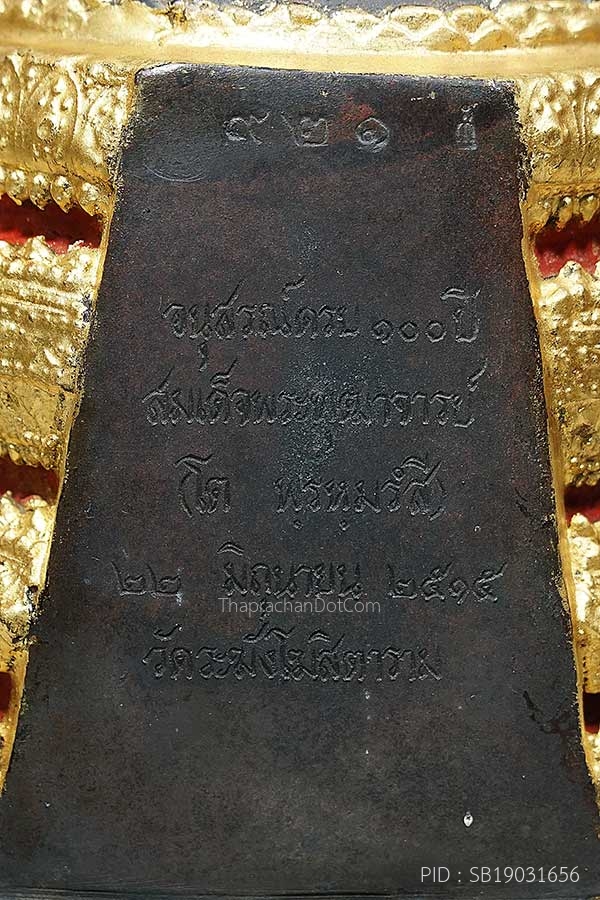 ๙๒๑
อนุสรณ์ครบ ๑๐๐ ปี
สมเด็จพระพุฒาจารย์
(โต พฺรหฺมรํสี)
๒๒ มิถุนายน ๒๕๑๕
วัดระฆังโฆสิตาราม
ThaprachanDotCom
PID : SB19031656